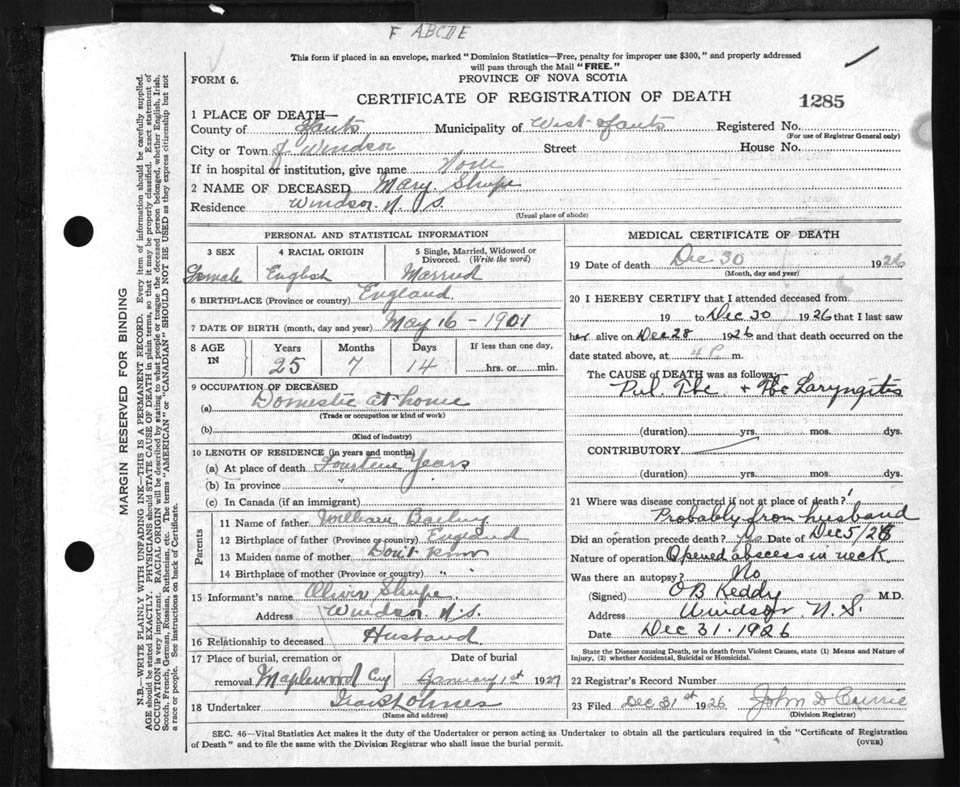 F ABCDE
This form if placed in an envelope, marked "Dominion Statistics—Free, penalty for improper use $300," and properly addressed
will pass through the Mail "FREE."
FORM 6.
PROVINCE OF NOVA SCOTIA
CERTIFICATE OF REGISTRATION OF DEATH
1285
1 PLACE OF DEATH—
County of Hants Municipality of West Hants Registered No.
(For use of Registrar General only)
City or Town of Windsor Street House No.
If in hospital or institution, give name None
2 NAME OF DECEASED Mary Shupe
Residence Windsor N. S.
(Usual place of abode)
PERSONAL AND STATISTICAL INFORMATION
3 SEX 4 RACIAL ORIGIN 5 Single, Married, Widowed or
Divorced. (Write the word)
Female English Married
6 BIRTHPLACE (Province or country) England
7 DATE OF BIRTH (month, day and year) May 16 - 1901
8 AGE IN Years Months Days If less than one day,
25 7 14 hrs. or min.
9 OCCUPATION OF DECEASED
(a) Domestic at home
(Trade or occupation or kind of work)
(b)
(Kind of industry)
10 LENGTH OF RESIDENCE (in years and months)
(a) At place of death Fourteen Years
(b) In province " "
(c) In Canada (if an immigrant)
Parents
11 Name of father William Bailey
12 Birthplace of father (Province or country) England
13 Maiden name of mother Don't know
14 Birthplace of mother (Province or country) " "
15 Informant's name Oliver Shupe
Address Windsor N.S.
16 Relationship to deceased Husband
17 Place of burial, cremation or Date of burial
removal Maplewood Cey January 1st 1927
18 Undertaker
(Name and address)
MEDICAL CERTIFICATE OF DEATH
19 Date of death Dec 30 1926
(Month, day and year)
20 I HEREBY CERTIFY that I attended deceased from
19 to Dec 30 1926 that I last saw
her alive on Dec 28 1926 and that death occurred on the
date stated above, at 4 P m.
The CAUSE OF DEATH was as follows:
Pul. Tbc. + Tbc Laryngitis
(duration) yrs. mos. dys.
CONTRIBUTORY
(duration) yrs. mos. dys.
21 Where was disease contracted if not at place of death?
Probably from husband
Did an operation precede death? Yes Date of Dec 5/26
Nature of operation Opened abscess in neck
Was there an autopsy? No
(Signed) O B Keddy M.D.
Address Windsor N.S.
Date Dec 31. 1926
State the Disease causing Death, or in death from Violent Causes, state (1) Means and Nature of
Injury, (2) whether Accidental, Suicidal or Homicidal.
22 Registrar's Record Number
23 Filed Dec 31st 1926 John D Currie
(Division Registrar)
SEC. 46—Vital Statistics Act makes it the duty of the Undertaker or person acting as Undertaker to obtain all the particulars required in the "Certificate of Registration
of Death" and to file the same with the Division Registrar who shall issue the burial permit.
(OVER)
MARGIN RESERVED FOR BINDING
N.B.—WRITE PLAINLY WITH UNFADING INK—THIS IS A PERMANENT RECORD. Every item of information should be carefully supplied.
AGE should be stated EXACTLY. PHYSICIANS should STATE CAUSE OF DEATH in plain terms, so that it may be properly classified. Exact statement of
OCCUPATION is very important. RACIAL ORIGIN will be described by stating to what people or tongue the deceased person belonged, whether English, Irish,
Scotch, French, German, Russian, Ruthenian, etc. The terms "AMERICAN" or "CANADIAN" SHOULD NOT BE USED as they express citizenship but not
a race or people. See instructions on back of Certificate.